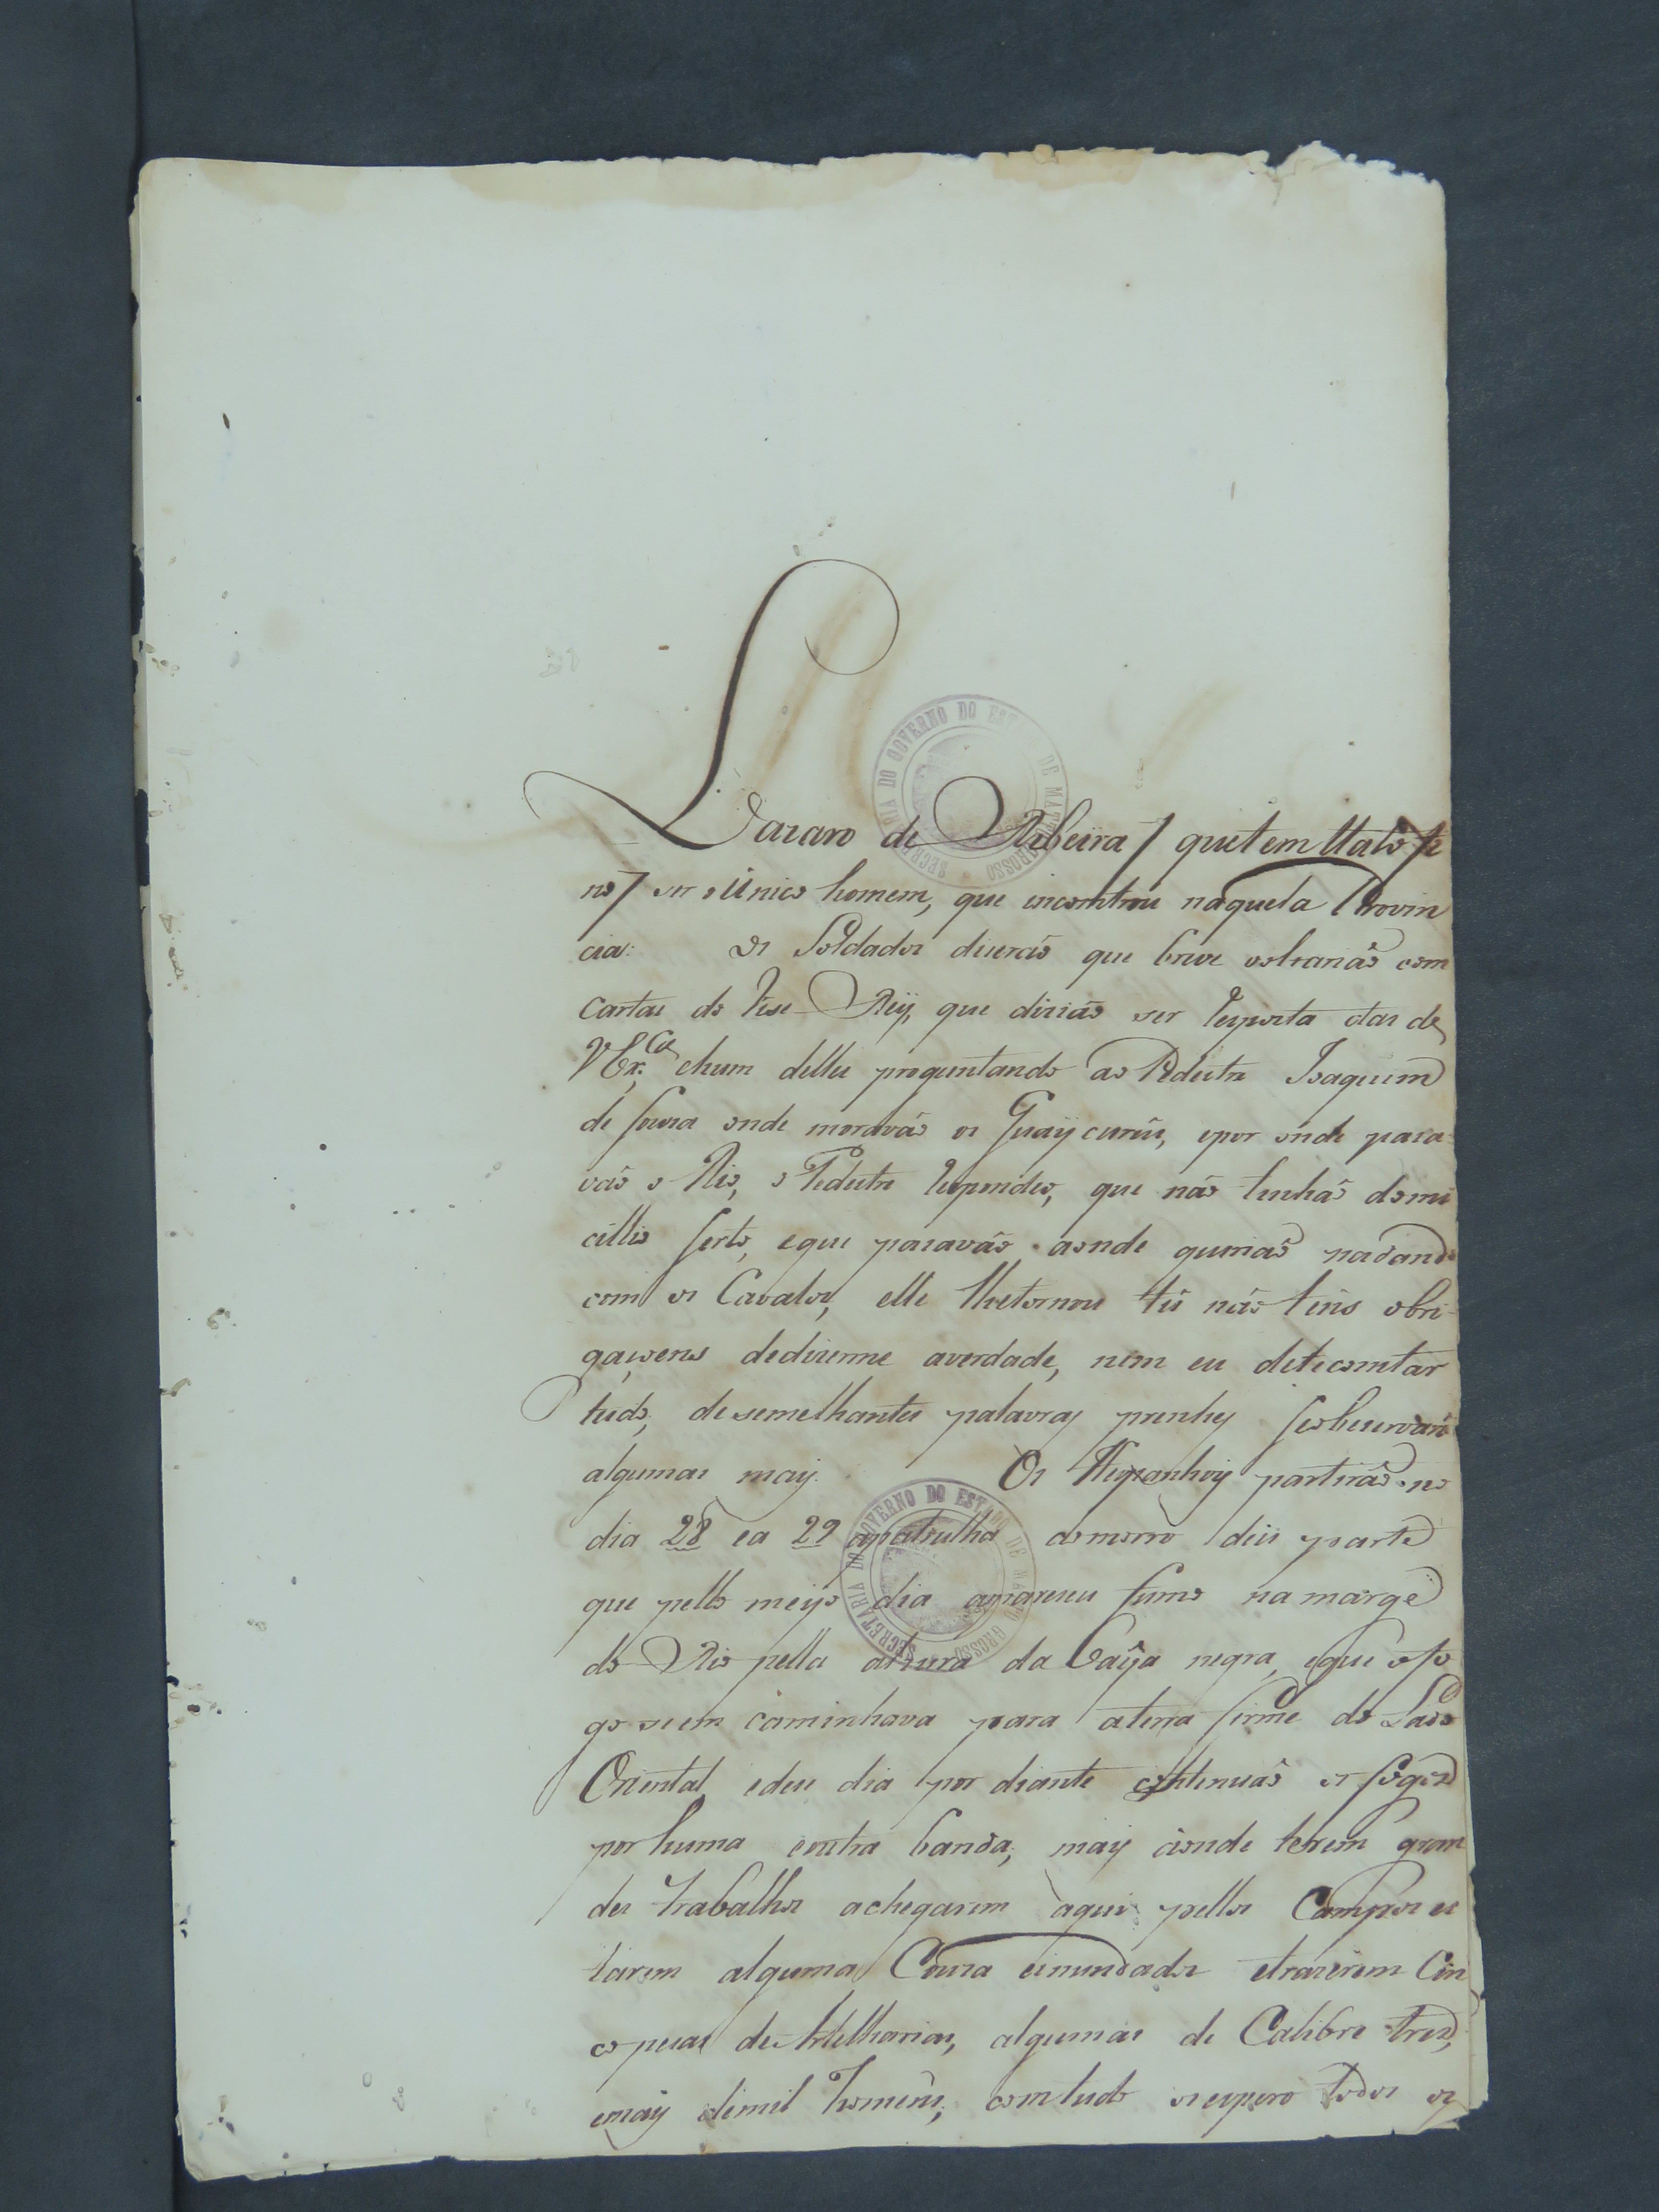 Lazaro de Ribeira / que tem Italo fe
no / ser o único homem, que incomtrou naquela Provin
cia: Os Soldados diserão que breve voltarião com
cartas do Vise Reÿ, que dizião ser resposta das de
VEx.cia, ehum delles preguntando ao Pedestre Joaquim
de Souza onde moravão os Guaÿcurûs, epor onde pasa
vão o Rio, o Pedestre respondeo, que não tinhão domi
cillio serto, eque pasavão aonde querião nadando
com os Cavalos, elle lhetornou tû não tens obri
gaçoens dedizerme averdade, nem eu detecomtar
tudo, de semelhantes palavras prenhes seobservarão
algumas mais. Os Hespanhois partirão no
dia 28 ea 29 apatrulha domorro deu parte
que pello meyo dia apareseu fumo na marge
do Rio pella altura da Baÿa negra, eque ofo
go seem caminhava para aterra firme do Lado
Oriental, edese dia por diante continuão os fogos
por huma eoutra banda, mais aonde terem gran
des trabalhos achegarem aqui pellos Campos es
tarem alguma Couza einundados etrazerem Cin
co pesas de Artelharias, algumas de Calibre tres,
emais demil homens, comtudo os espero todos os
SECRETARIA DO GOVERNO DO ESTADO DE MATTO GROSSO
SECRETARIA DO GOVERNO DO ESTADO DE MATTO GROSSO